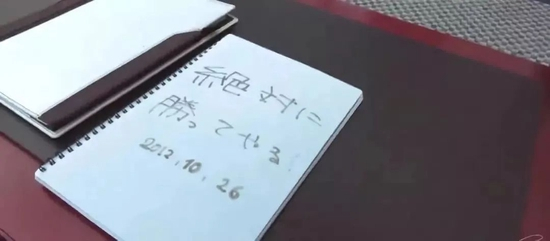 絶対に
勝ってやる!
2012.10.26